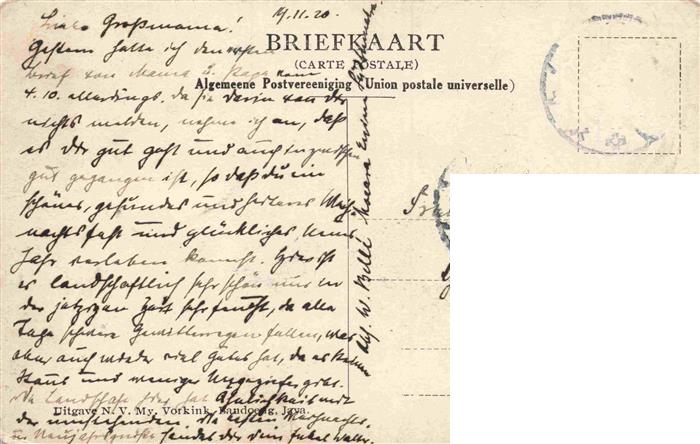 19.11.20.
Liebe Großmama!
Gestern hatte ich den ersten
Brief von Mama u. Papa vom
4.10. allerdings. da sie darin von dir
nichts melden, nehme ich an, daß
es dir gut geht und auch inzwischen
gut gegangen ist, so daß du ein
schönes, gesundes und heiteres Weih-
nachtsfest und glückliches Neues
Jahr verleben kannst. Hier ist
es landschaftlich sehr schön nur in
der jetzigen Zeit sehr feucht, da alle
Tage schwere Gewitterregen fallen, was
aber auch wieder viel Gutes hat, da es keinen
Staub und weniger Ungeziefer gibt.
Die Landschaft hier hat Ähnlichkeit mit
der umstehenden. Die besten Weihnachts-
u. Neujahrsgrüße sendet dir dein Enkel Walter.
BRIEFKAART
(CARTE POSTALE)
Algemeene Postvereeniging (Union postale universelle)
Abs. W. Bellé Moeara Enim Südsumatra.
Uitgave N. V. My. Vorkink, Bandoeng, Java.